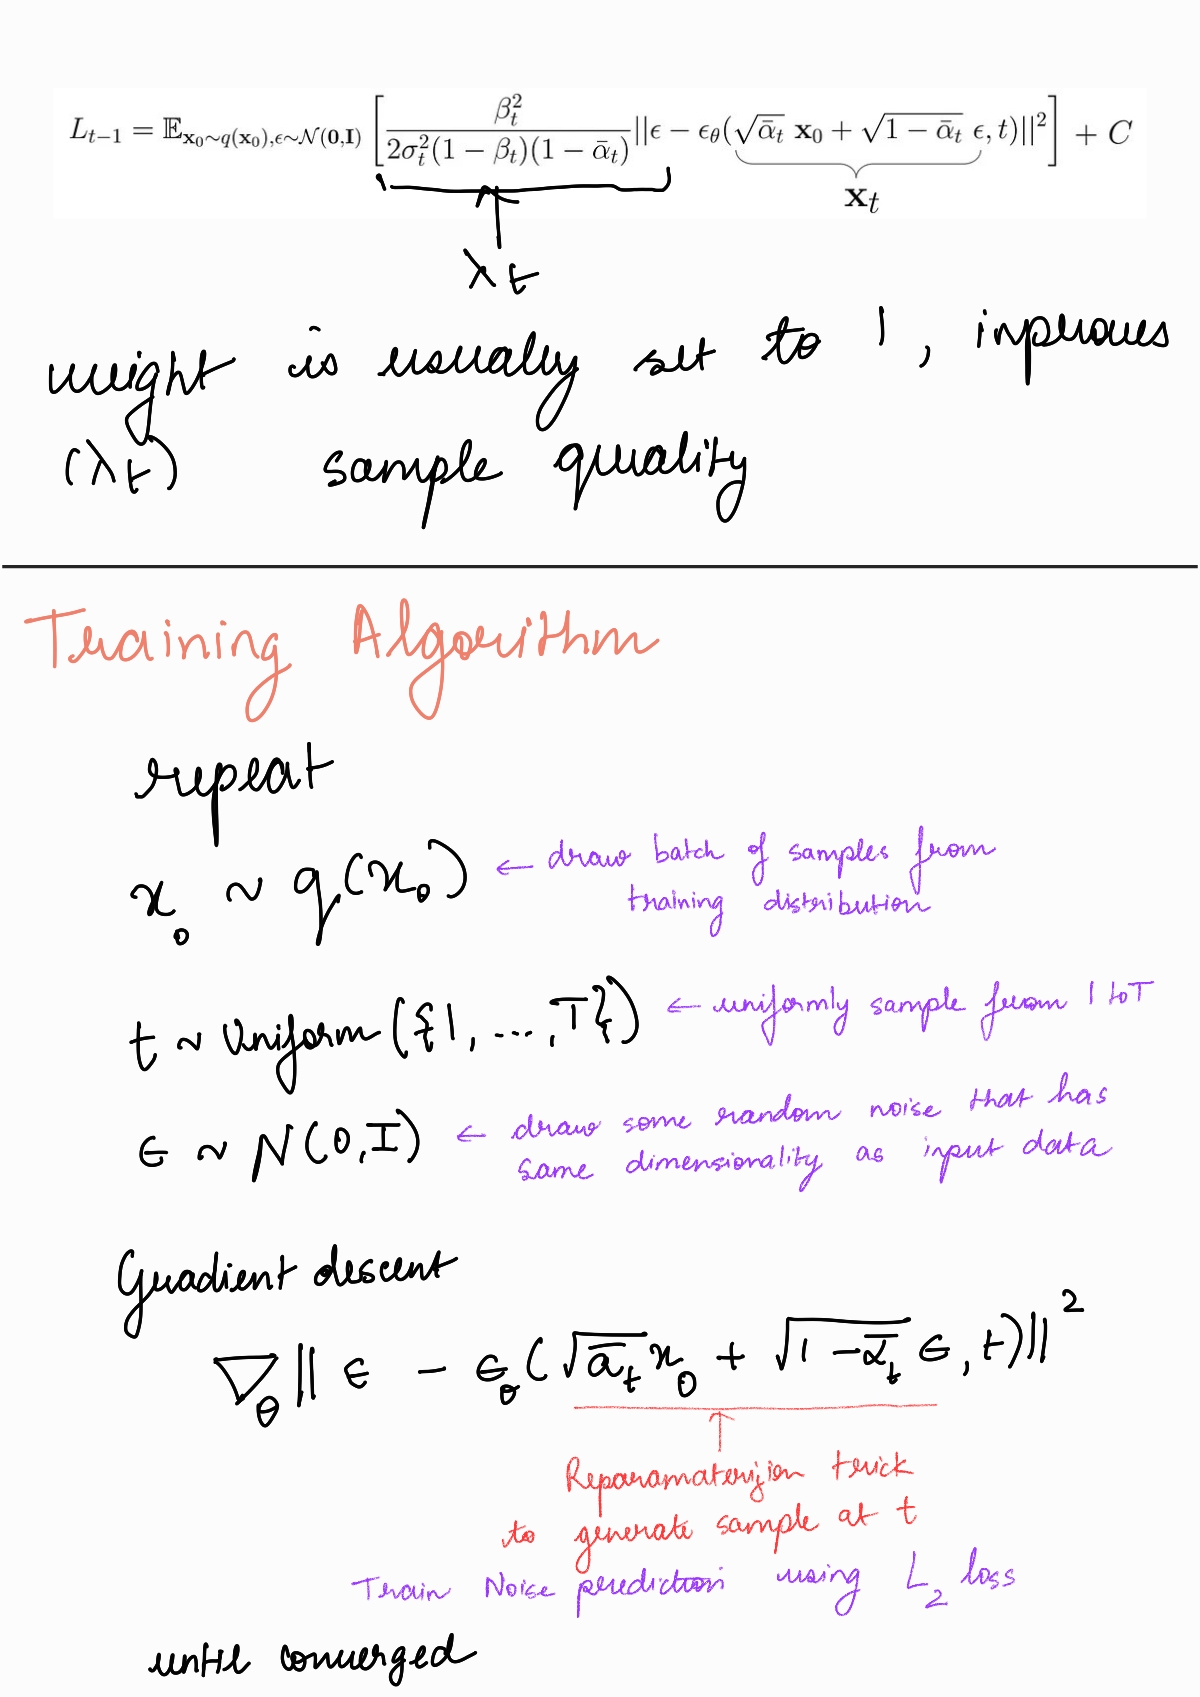 L_{t-1} = 𝔼_{x_0∼q(x_0),ϵ∼𝒩(0,I)} [ β_t^2 / (2σ_t^2(1 − β_t)(1 − ᾱ_t)) ||ϵ − ϵ_θ(√ᾱ_t x_0 + √(1 − ᾱ_t) ϵ, t)||^2 ] + C
x_t
λt
weight is usually set to 1, inproves
(λt) sample quality
Training Algorithm
repeat
x_0 ~ q(x_0) ← draw batch of samples from
training distribution
t ~ Uniform ({1, ..., T}) ← uniformly sample from 1 to T
ϵ ~ N(0, I) ← draw some random noise that has
same dimensionality as input data
Gradient descent
∇_θ || ϵ − ϵ_θ(√ᾱ_t x_0 + √(1 − ᾱ_t) ϵ, t)||^2
↑
Reparamaterizion trick
to generate sample at t
Train Noise prediction using L_2 loss
until converged